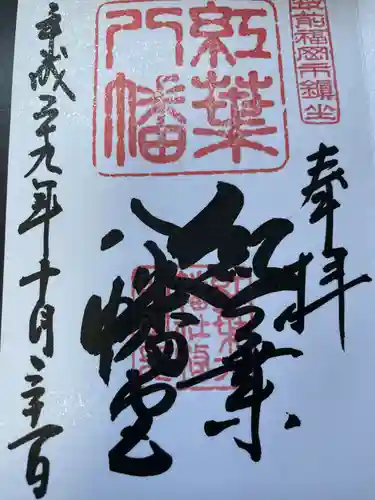 筑前福岡市鎮坐
奉拝
紅葉
八幡
紅葉
八幡宮
平成二十九年十月二十一日